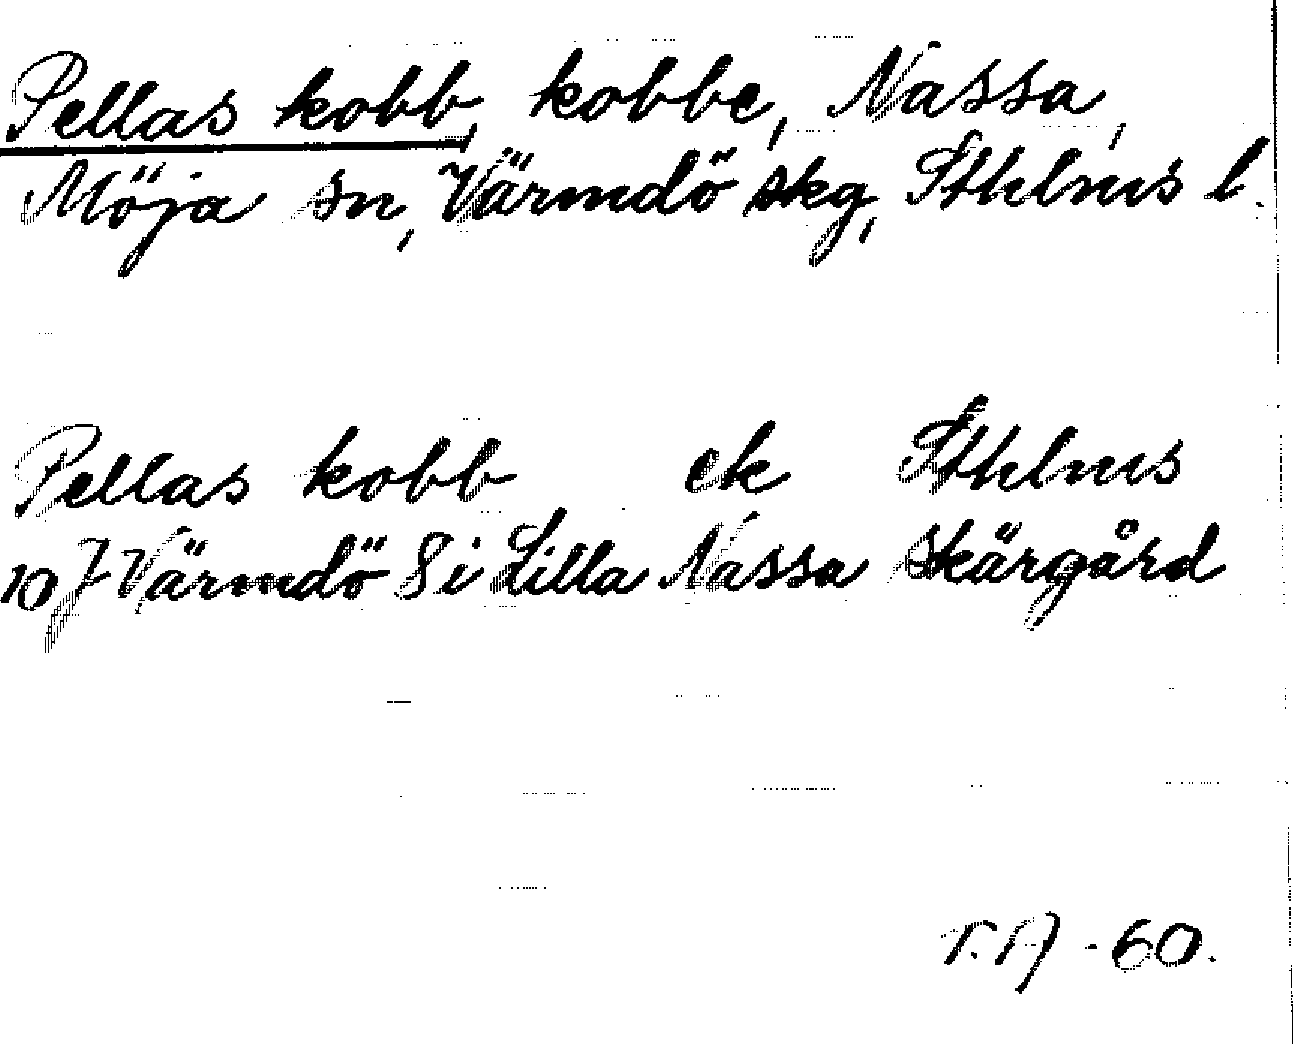 Pellas kobb, kobbe, Nassa,
Möja sn, Värmdö skg, Sthlms l.
Pellas kobb ek Sthlms
10 J Värmdö 8 i Lilla Nassa skärgård
-60.